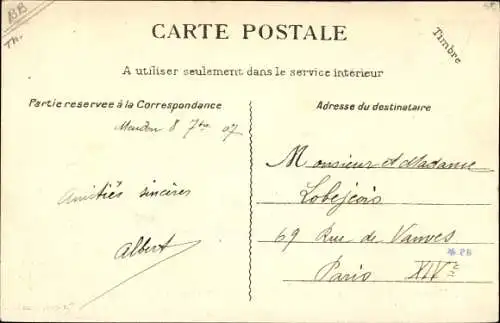 BB
Th.
CARTE POSTALE
Timbre
A utiliser seulement dans le service intérieur
Partie reservée à la Correspondance
Meudon 8 7bre 07
Amitiés sincères
Albert
Adresse du destinataire
Monsieur et Madame
Lobejois
69 Rue de Vanves
Paris XIVe
PB